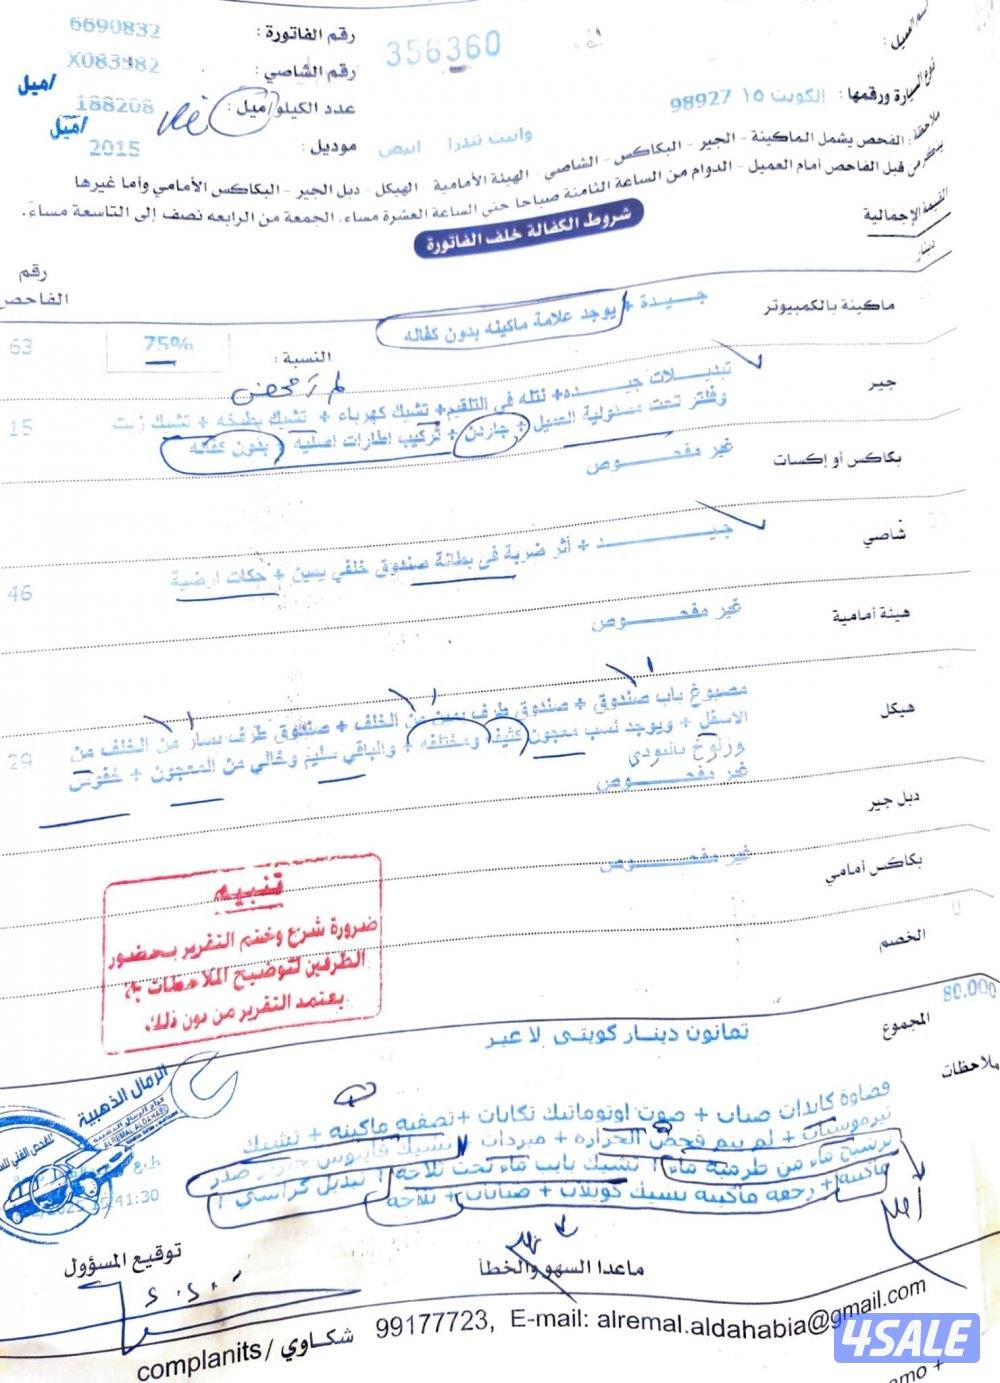 رقم الفاتورة : 6690832
356360
اسم العميل :
رقم الشاصي : X083982
نوع السيارة ورقمها : الكويت 15 98927
عدد الكيلو/ميل : 188208 /ميل
/ميل
موديل : 2015
وانيت تندرا ابيض
ملاحظة : الفحص يشمل الماكينة - الجير - البكاكس - الشاصي - الهيئة الأمامية - الهيكل - دبل الجير - البكاكس الأمامي وأما غيرها
من قبل الفاحص أمام العميل - الدوام من الساعة الثامنة صباحا حتى الساعة العشرة مساء. الجمعة من الرابعه نصف إلى التاسعة مساءً.
شروط الكفالة خلف الفاتورة
القيمة الإجمالية
دينار
رقم الفاحص
ماكينة بالكمبيوتر
جـــيـدة + يوجد علامة ماكينه بدون كفاله
63
النسبة : 75%
جير
تبديـــلات جيـــده+ نتله في التلقيم+ تشيك كهرباء + تشيك بطيخه + تشيك زيت
وفلتر تحت مسئولية العميل + جاردن + تركيب اطارات اصليه + بدون كفاله
15
بكاكس أو إكسات
غير مفحـــوص
شاصي
جيـــــد + أثر ضربة في بطانة صندوق خلفي يمين + جكات ارضية
46
هيئة أمامية
غير مفحـــوص
هيكل
مصبوغ باب صندوق + صندوق طرف يمين من الخلف + صندوق طرف يسار من الخلف من
الاسفل + ويوجد نسب معجون كثيفه ومختلفه + والباقي سليم وخالي من المعجون + خفوس
وزلوخ بالبودي
29
دبل جير
غير مفحـــوص
بكاكس أمامي
غير مفحـــوص
الخصم
0
تنبيه
ضرورة شرح وختم التقرير بحضور
الطرفين لتوضيح الملاحظات
يعتمد التقرير من دون ذلك.
المجموع
80.000
ثمانون دينـار كويتى لا غير
ملاحظات
قضاوة كاندات صباب + صوت اوتوماتيك تكايات +تصفيه ماكينه + تشيك
ثيرموستات + لم يتم فحص الحراره + مبردات + تشيك فانيوس جنزير صدر
ترشيح ماء من طرمبة ماء + تشيك بايب ماء تحت ثلاجه + تبديل كراسي +
ماكينه + رجفه ماكينه تشيك كويلات + صبابات + ثلاجه
الرمال الذهبية
كراج الرمال الذهبية
ALREMAL ALDAHABIA
41:30
توقيع المسؤول
ماعدا السهو والخطأ
complanits / شكاوي 99177723, E-mail: alremal.aldahabia@gmail.com
4SALE